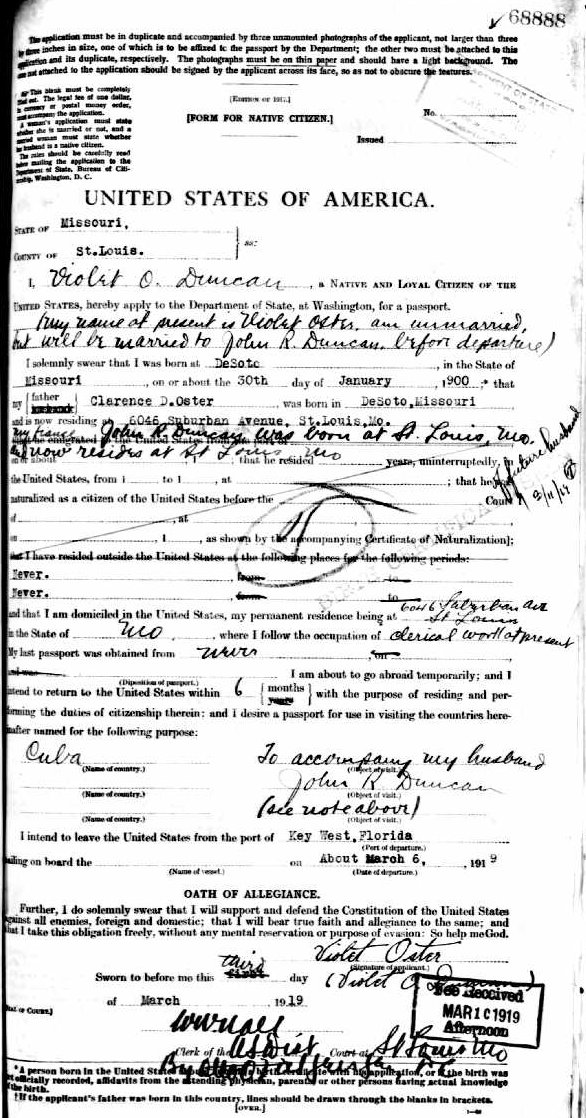 ✓ 68888
The application must be in duplicate and accompanied by three unmounted photographs of the applicant, not larger than three
by three inches in size, one of which is to be affixed to the passport by the Department; the other two must be attached to this
application and its duplicate, respectively. The photographs must be on thin paper and should have a light background. The
one not attached to the application should be signed by the applicant across its face, so as not to obscure the features.
This blank must be completely
filled out. The legal fee of one dollar,
in currency or postal money order,
must accompany the application.
A woman's application must state
whether she is married or not, and a
married woman must state whether
her husband is a native citizen.
The rules should be carefully read
before mailing the application to the
Department of State, Bureau of Citizenship,
Washington, D. C.
[EDITION OF 1917.]
[FORM FOR NATIVE CITIZEN.]
No.
Issued
UNITED STATES OF AMERICA.
STATE OF Missouri,
COUNTY OF St.Louis.
ss:
I, Violet O. Duncan, a NATIVE AND LOYAL CITIZEN OF THE
UNITED STATES, hereby apply to the Department of State, at Washington, for a passport.
(my name at present is Violet Oster, am unmarried,
but will be married to John R. Duncan, before departure)
I solemnly swear that I was born at DeSoto, in the State of
Missouri, on or about the 30th day of January, 1900; that
my father husband Clarence D.Oster was born in DeSoto,Missouri
and is now residing at 6046 Suburban Avenue, St.Louis,Mo.
John R. Duncan was born at St. Louis, Mo.
that he emigrated to the United States
and now resides at St Louis, Mo
on or about , 1 ; that he resided years, uninterruptedly, in
the United States, from 1 to 1 , at ; that he
naturalized as a citizen of the United States before the Court
future husband
3/11/19
of , at
on , 1 , as shown by the accompanying Certificate of Naturalization];
that I have resided outside the United States at the following places for the following periods:
Never. from to
Never. from to
and that I am domiciled in the United States, my permanent residence being at 6046 Suburban Ave
St Louis
in the State of Mo, where I follow the occupation of clerical work at present
My last passport was obtained from never on
and was
(Disposition of passport.)
I am about to go abroad temporarily; and I
intend to return to the United States within 6 { months years } with the purpose of residing and per-
forming the duties of citizenship therein; and I desire a passport for use in visiting the countries here-
inafter named for the following purpose:
Cuba To accompany my husband
(Name of country.) (Object of visit.)
John R Duncan
(Name of country.) (Object of visit.)
(see note above)
(Name of country.) (Object of visit.)
I intend to leave the United States from the port of Key West,Florida
(Port of departure.)
sailing on board the on About March 6, , 1919
(Name of vessel.) (Date of departure.)
OATH OF ALLEGIANCE.
Further, I do solemnly swear that I will support and defend the Constitution of the United States
against all enemies, foreign and domestic; that I will bear true faith and allegiance to the same; and
that I take this obligation freely, without any mental reservation or purpose of evasion: So help me God.
Violet Oster
(Signature of applicant.)
(Violet O. Duncan)
Sworn to before me this third first day
of March 1919
Received
MAR 10 1919
Afternoon
[SEAL OF COURT.]
Clerk of the US Dist Court at St Louis Mo
* A person born in the United States
with his application, or if the birth was
not officially recorded, affidavits from the attending physician, parents or other persons having actual knowledge
of the birth.
† If the applicant's father was born in this country, lines should be drawn through the blanks in brackets.
[OVER.]